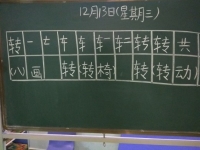 12月13日(星期三)
转 一 𠂇 车 车 车 车 转 转 共
(八)画 转(转椅) 转(转动)